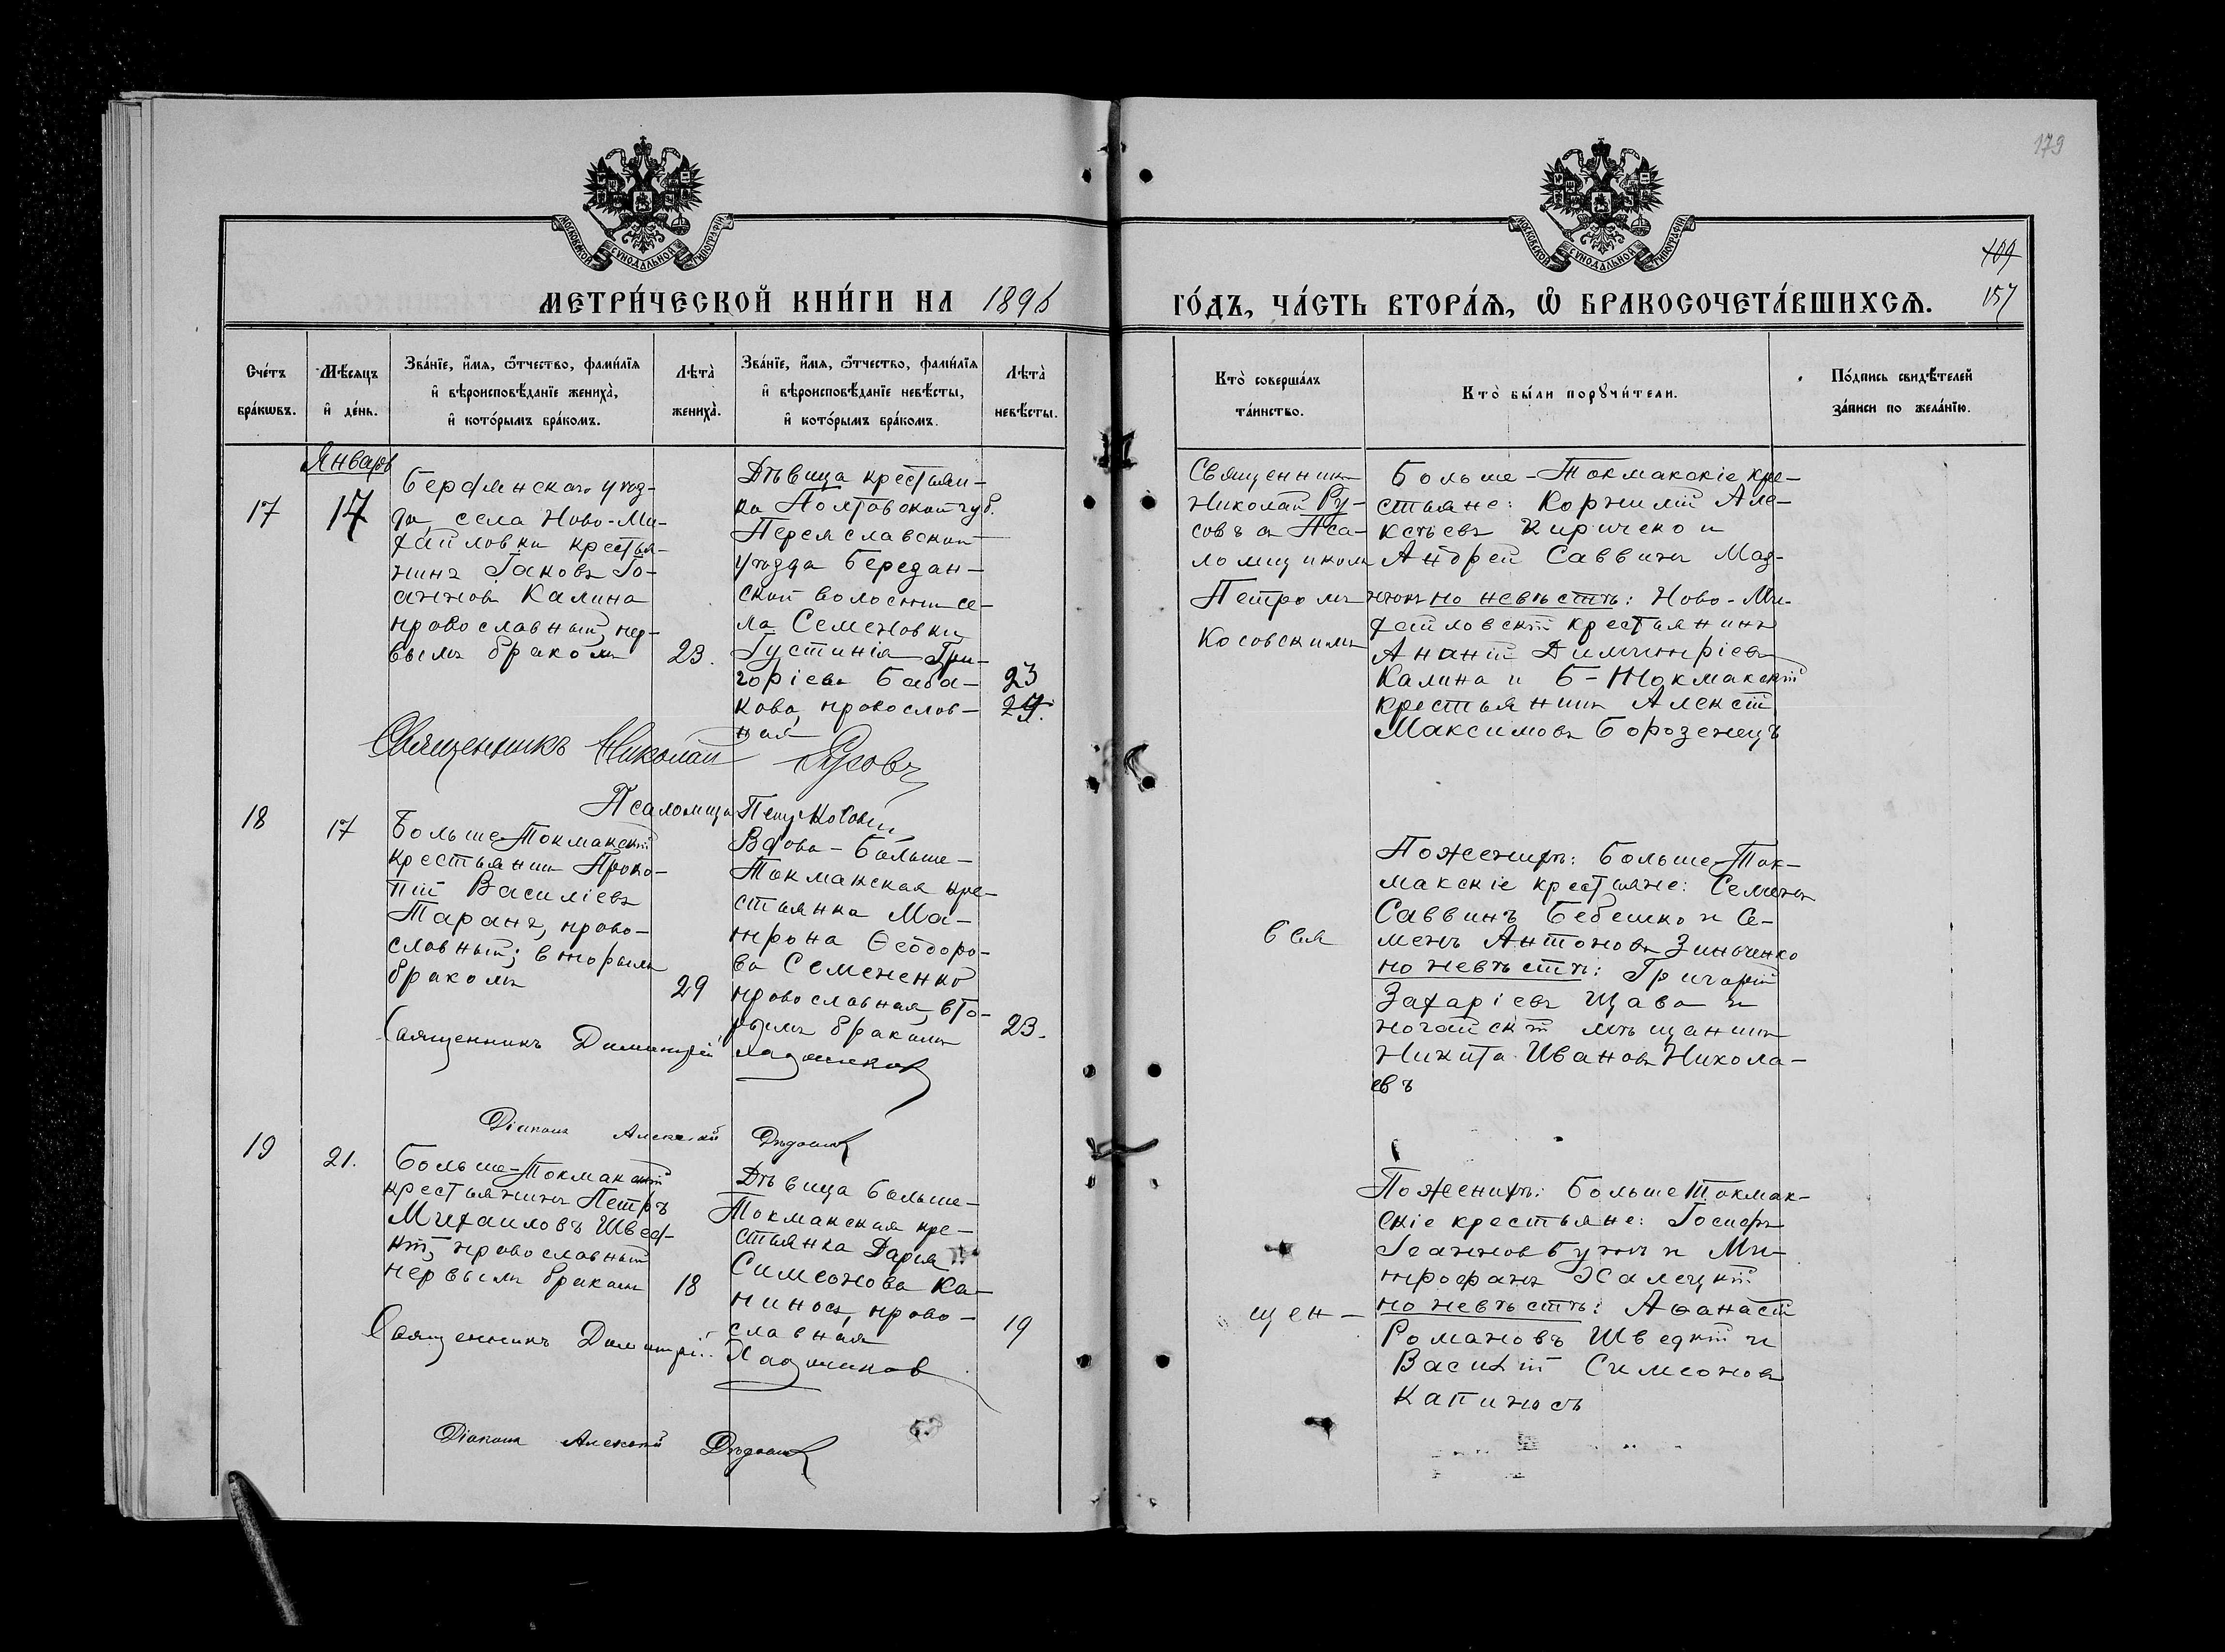 179
МОСКОВСКОЙ СѴНОДАЛЬНОЙ ТИПОГРАФІИ
МОСКОВСКОЙ СѴНОДАЛЬНОЙ ТИПОГРАФІИ
109
157
МЕТРИ́ЧЕСКОЙ КНИ́ГИ НА 1896
ГО́ДЪ, ЧА́СТЬ ВТОРА́Ѧ, Ѽ БРАКОСОЧЕТА́ВШИХСѦ.
Сче́тъ
бра́кѡвъ.
Мѣ́сяцъ
и҆ де́нь.
Зва́нїе, и҆́мѧ, ѻ҆́тчество, фами́лїѧ
и҆ вѣроисповѣ́данїе жениха̀,
и҆ кото́рымъ бра́комъ.
Лѣта̀
жениха̀.
Зва́нїе, и҆́мѧ, ѻ҆́тчество, фами́лїѧ
и҆ вѣроисповѣ́данїе невѣ́сты,
и҆ кото́рымъ бра́комъ.
Лѣта̀
невѣ́сты.
Кто̀ соверша́лъ
та́инство.
Кто̀ бы́ли порꙋчи́тели.
По́дпись свидѣ́телей
за́писи по жела́нїю.
Январь
17
17
Бердянскаго уѣз-
да, села Ново-Ми-
хайловки крестья-
нинъ Іаковъ Іо-
анновъ Калина
православный, пер-
вымъ бракомъ
23.
Дѣвица крестьян-
ка Полтавской губ.
Переяславскаго
уѣзда Бередан-
ской волости се-
ла Семеновки
Іустинія Гри-
горіева Баба-
кова, православ-
ная
23
Священникъ
Николай Ру-
совъ съ Пса-
ломщикомъ
Петромъ
Косовскимъ
Больше-Токмакскіе кре-
стьяне: Корнилій Але-
ксѣевъ Киричеко и
Андрей Саввинъ Маз-
по невѣстѣ: Ново-Ми-
хайловскій крестьянинъ
Ананій Димитріевъ
Калина и Б-Токмакскій
крестьянинъ Алексѣй
Максимовъ Борозенецъ
Священникъ Николай Русовъ
Псаломщ
18
17
Больше-Токмакскій
крестьянинъ Проко-
пій Василіевъ
Таранъ, право-
славный; вторымъ
бракомъ
29
Вдова-Больше-
Токмакская кре-
стьянка Ма-
трона Ѳеодоро-
ва Семененко
православная, вто-
рымъ бракомъ
23.
вся
По женихѣ: Больше-Ток-
макскіе крестьяне: Семенъ
Саввинъ Бебешко и Се-
менъ Антоновъ Зинченко
по невѣстѣ: Григорій
Захаріевъ Щава и
ногайскій мѣщанинъ
Никита Ивановъ Никола-
евъ
Священникъ Димитрій
Діаконъ Алексѣй
19
21.
Больше-Токмакскій
крестьянинъ Петръ
Михаиловъ Швед-
кій, православный
первымъ бракомъ
18
Дѣвица Больше-
Токмакская кре-
стьянка Дарія
Симеонова Ка-
пиносъ, право-
славная
19
щен-
По женихѣ: Больше Токмак-
скіе крестьяне: Іосифъ
Іоанновъ и Ми-
трофанъ Халецкій
по невѣстѣ: Аѳанасій
Романовъ Шведкій и
Василій Симеоновъ
Капиносъ
Священникъ Димитрій
Діаконъ Алексѣй